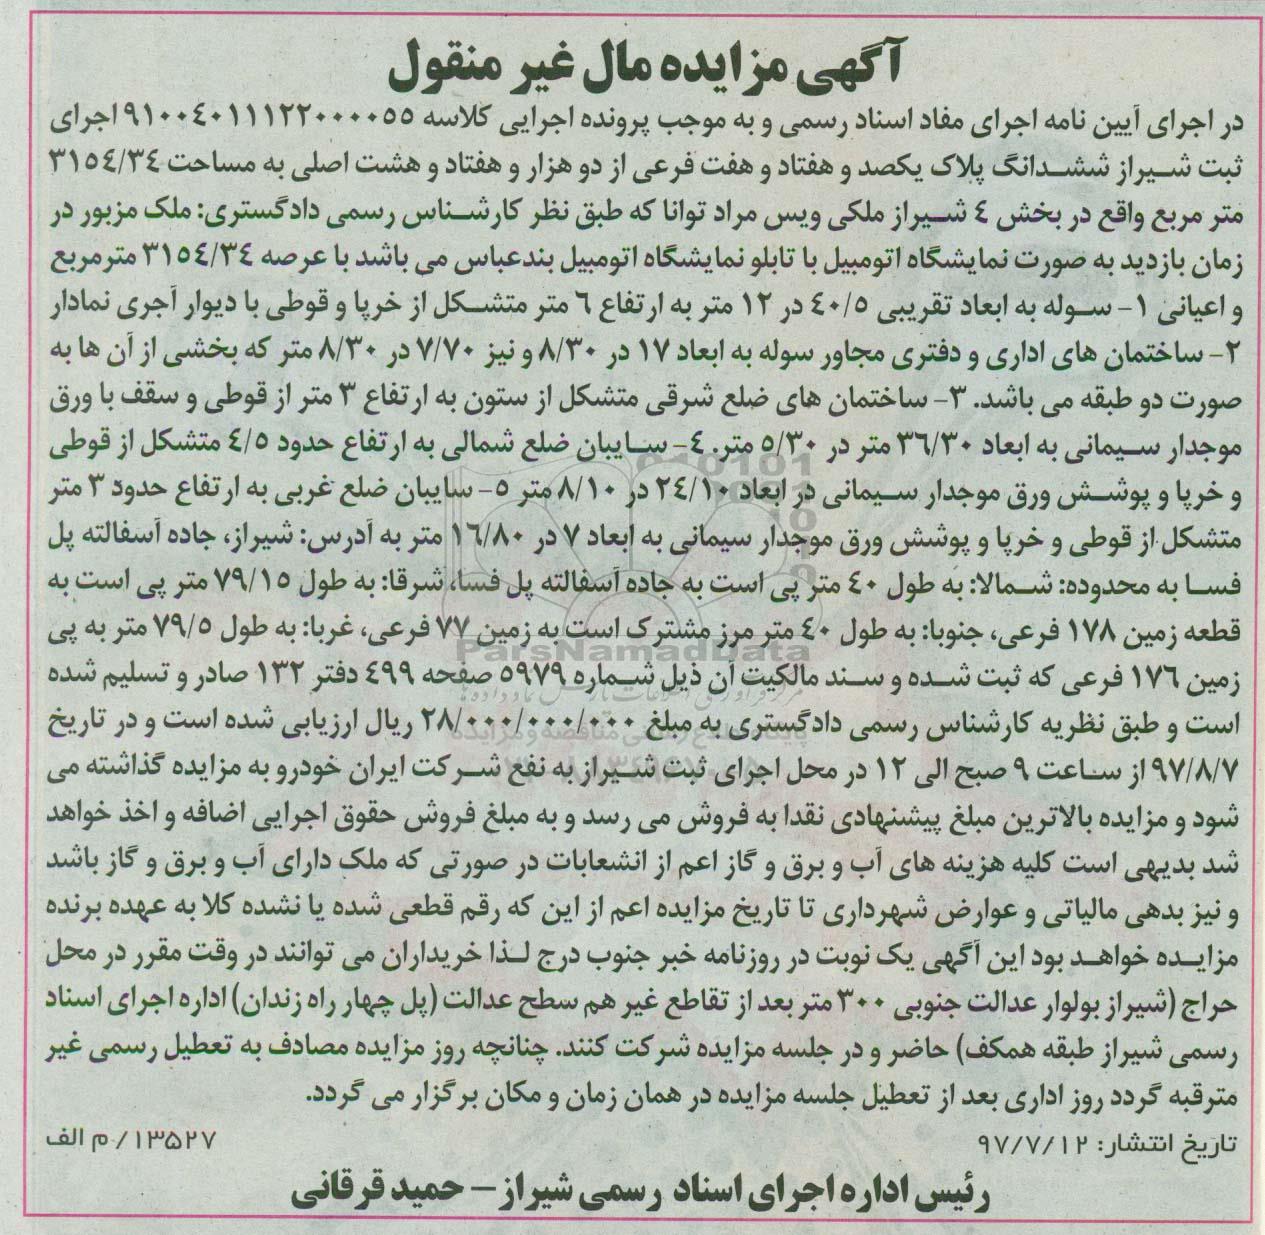 آگهی مزایده مال غیر منقول
در اجرای آیین نامه اجرای مفاد اسناد رسمی و به موجب پرونده اجرایی کلاسه ۹۱۰۰۴۰۱۱۱۲۲۰۰۰۰۵۵ اجرای
ثبت شیراز ششدانگ پلاک یکصد و هفتاد و هفت فرعی از دو هزار و هفتاد و هشت اصلی به مساحت ۳۱۵۴/۳۴
متر مربع واقع در بخش ۴ شیراز ملکی ویس مراد توانا که طبق نظر کارشناس رسمی دادگستری: ملک مزبور در
زمان بازدید به صورت نمایشگاه اتومبیل با تابلو نمایشگاه اتومبیل بندعباس می باشد با عرصه ۳۱۵۴/۳۴ مترمربع
و اعیانی ۱- سوله به ابعاد تقریبی ۴۰/۵ در ۱۲ متر به ارتفاع ۶ متر متشکل از خرپا و قوطی با دیوار آجری نمادار
۲- ساختمان های اداری و دفتری مجاور سوله به ابعاد ۱۷ در ۸/۳۰ و نیز ۷/۷۰ در ۸/۳۰ متر که بخشی از آن ها به
صورت دو طبقه می باشد. ۳- ساختمان های ضلع شرقی متشکل از ستون به ارتفاع ۳ متر از قوطی و سقف با ورق
موجدار سیمانی به ابعاد ۳۶/۳۰ متر در ۵/۳۰ متر. ۴- سایبان ضلع شمالی به ارتفاع حدود ۴/۵ متشکل از قوطی
و خرپا و پوشش ورق موجدار سیمانی در ابعاد ۲۴/۱۰ در ۸/۱۰ متر ۵- سایبان ضلع غربی به ارتفاع حدود ۳ متر
متشکل از قوطی و خرپا و پوشش ورق موجدار سیمانی به ابعاد ۷ در ۱۶/۸۰ متر به آدرس: شیراز، جاده آسفالته پل
فسا به محدوده: شمالا: به طول ۴۰ متر پی است به جاده آسفالته پل فسا، شرقا: به طول ۷۹/۱۵ متر پی است به
قطعه زمین ۱۷۸ فرعی، جنوبا: به طول ۴۰ متر مرز مشترک است به زمین ۷۷ فرعی، غربا: به طول ۷۹/۵ متر به پی
زمین ۱۷۶ فرعی که ثبت شده و سند مالکیت آن ذیل شماره ۵۹۷۹ صفحه ۴۹۹ دفتر ۱۳۲ صادر و تسلیم شده
است و طبق نظریه کارشناس رسمی دادگستری به مبلغ ۲۸/۰۰۰/۰۰۰/۰۰۰ ریال ارزیابی شده است و در تاریخ
۹۷/۸/۷ از ساعت ۹ صبح الی ۱۲ در محل اجرای ثبت شیراز به نفع شرکت ایران خودرو به مزایده گذاشته می
شود و مزایده بالاترین مبلغ پیشنهادی نقدا به فروش می رسد و به مبلغ فروش حقوق اجرایی اضافه و اخذ خواهد
شد بدیهی است کلیه هزینه های آب و برق و گاز اعم از انشعابات در صورتی که ملک دارای آب و برق و گاز باشد
و نیز بدهی مالیاتی و عوارض شهرداری تا تاریخ مزایده اعم از این که رقم قطعی شده یا نشده کلا به عهده برنده
مزایده خواهد بود این آگهی یک نوبت در روزنامه خبر جنوب درج لذا خریداران می توانند در وقت مقرر در محل
حراج (شیراز بولوار عدالت جنوبی ۳۰۰ متر بعد از تقاطع غیر هم سطح عدالت (پل چهار راه زندان) اداره اجرای اسناد
رسمی شیراز طبقه همکف) حاضر و در جلسه مزایده شرکت کنند. چنانچه روز مزایده مصادف به تعطیل رسمی غیر
مترقبه گردد روز اداری بعد از تعطیل جلسه مزایده در همان زمان و مکان برگزار می گردد.
تاریخ انتشار: ۹۷/۷/۱۲
۱۳۵۲۷/ م الف
رئیس اداره اجرای اسناد رسمی شیراز - حمید قرقانی
ParsNamadData